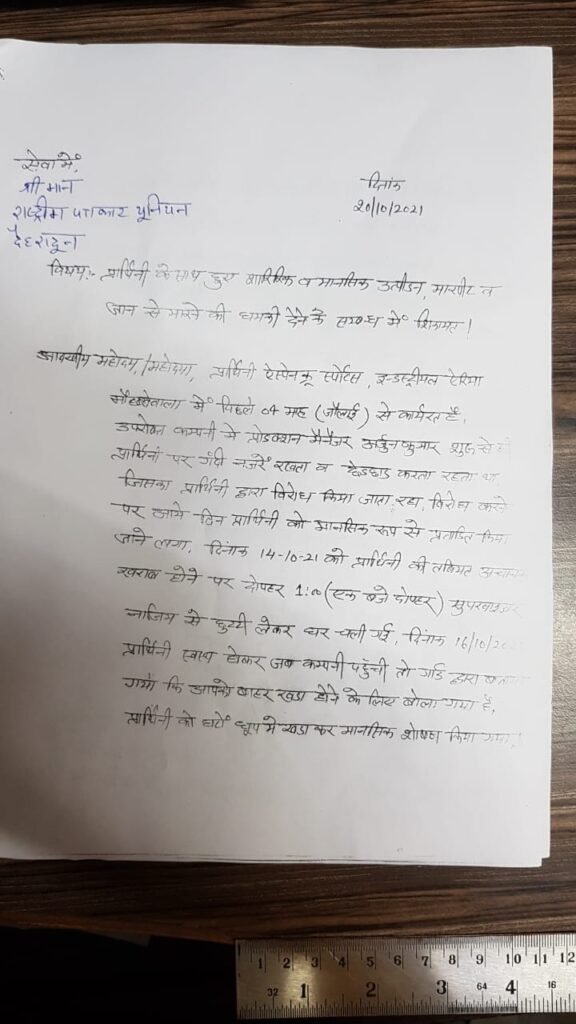 सेवा में,
श्री मान
राष्ट्रीय पत्रकार यूनियन
देहरादून
दिनांक
20/10/2021
विषय:- प्रार्थिनी के साथ हुए शारिरिक व मानसिक उत्पीडन, मारपीट व
जान से मारने की धमकी देने के सम्बन्ध में शिकायत!
आदरणीय महोदय/महोदया, प्रार्थिनी ऐस्पेनकू स्पोर्टस, इन्डस्ट्रीयल ऐरिया
में पिछले 04 माह (जौलाई) से कार्यरत है,
उपरोक्त कम्पनी मे प्रोडक्शन मैनेजर अर्जुन कुमार शुरू से ही
प्रार्थिनी पर गंदी नजरें रखता व छेडछाड करता रहता था
जिसका प्रार्थिनी द्वारा विरोध किया जाता रहा, विरोध करने
पर आये दिन प्रार्थिनी को मानसिक रूप से प्रताडित किया
जाने लगा, दिनांक 14-10-21 को प्रार्थिनी की तबियत अचानक
खराब होने पर दोपहर 1:00 (एक बजे दोपहर) सुपरवाइजर
नाजिम से छुट्टी लेकर घर चली गई, दिनांक 16/10/20
प्रार्थिनी स्वस्थ होकर जब कम्पनी पहुंची तो गार्ड द्वारा बताया
गया कि आपको बाहर खडा होने के लिए बोला गया है,
प्रार्थिनी को घंटों धूप मे खडा कर मानसिक शोषण किया गया,
1 2 3 4 5 6 7 8 9 10 11 12
32 1 2 3 64 4 16